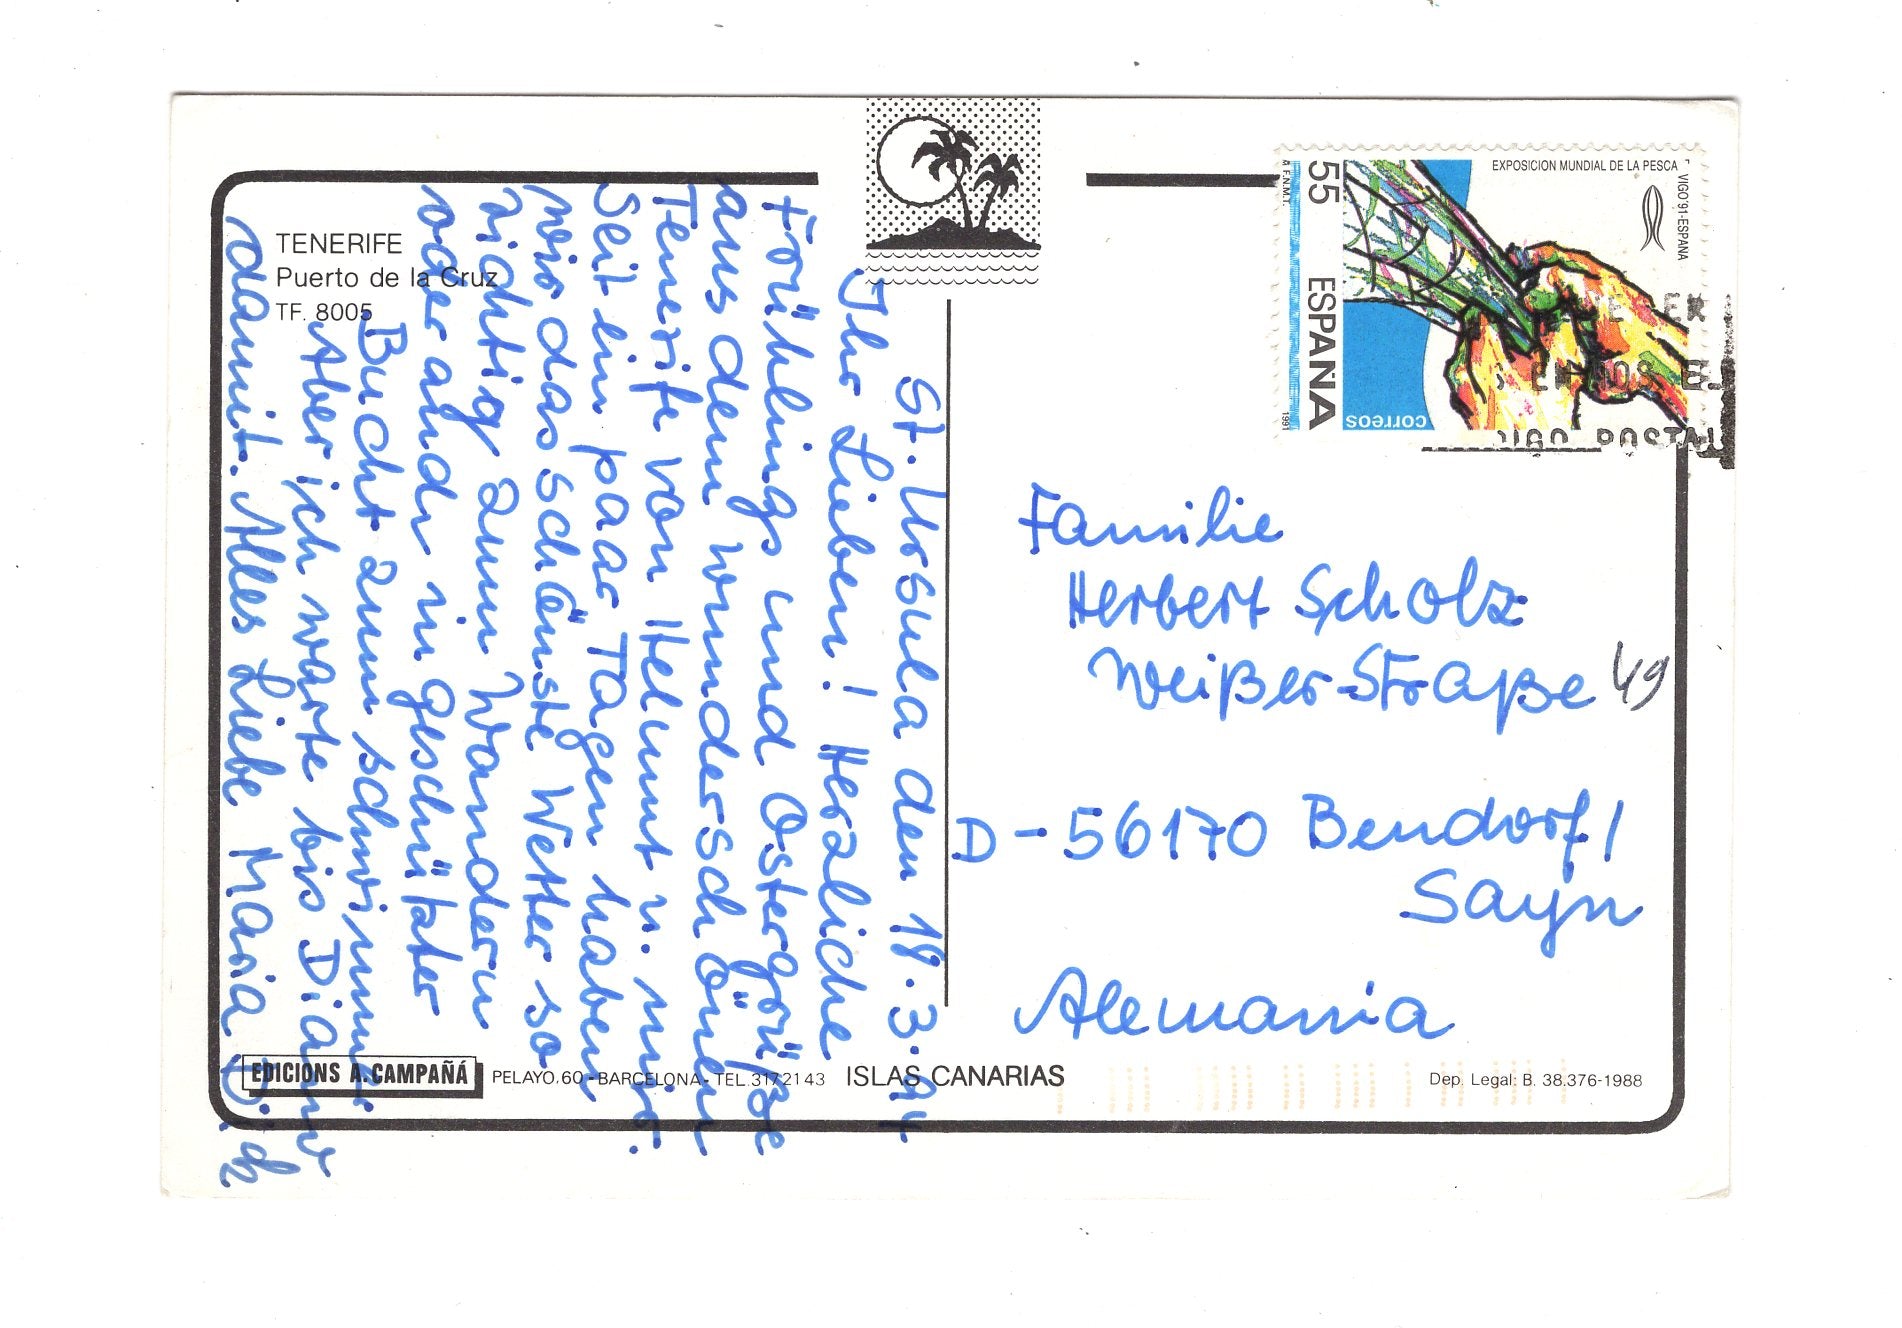 TENERIFE
Puerto de la Cruz
TF. 8005
St. Ursula den 18.3.94
Ihr Lieben! Herzliche
Frühlings und Ostergrüße
aus dem wunderschönen
Tenerife von Helmut u. mir.
Seit ein paar Tagen haben
wir das schönste Wetter so
richtig zum Wandern
oder auch in geschützter
Bucht zum schwimmen
Aber ich warte bis Diamv
damit. Alles Liebe Maria D.
EXPOSICION MUNDIAL DE LA PESCA
VIGO'91-ESPAÑA
55 ESPAÑA
correos
F.N.M.T. 1991
POSTAL
Familie
Herbert Scholz
Weißer-Straße 49
D-56170 Bendorf/
Sayn
Alemania
EDICIONS A. CAMPAÑÁ PELAYO, 60 - BARCELONA - TEL. 3172143 ISLAS CANARIAS
Dep. Legal: B. 38.376-1988